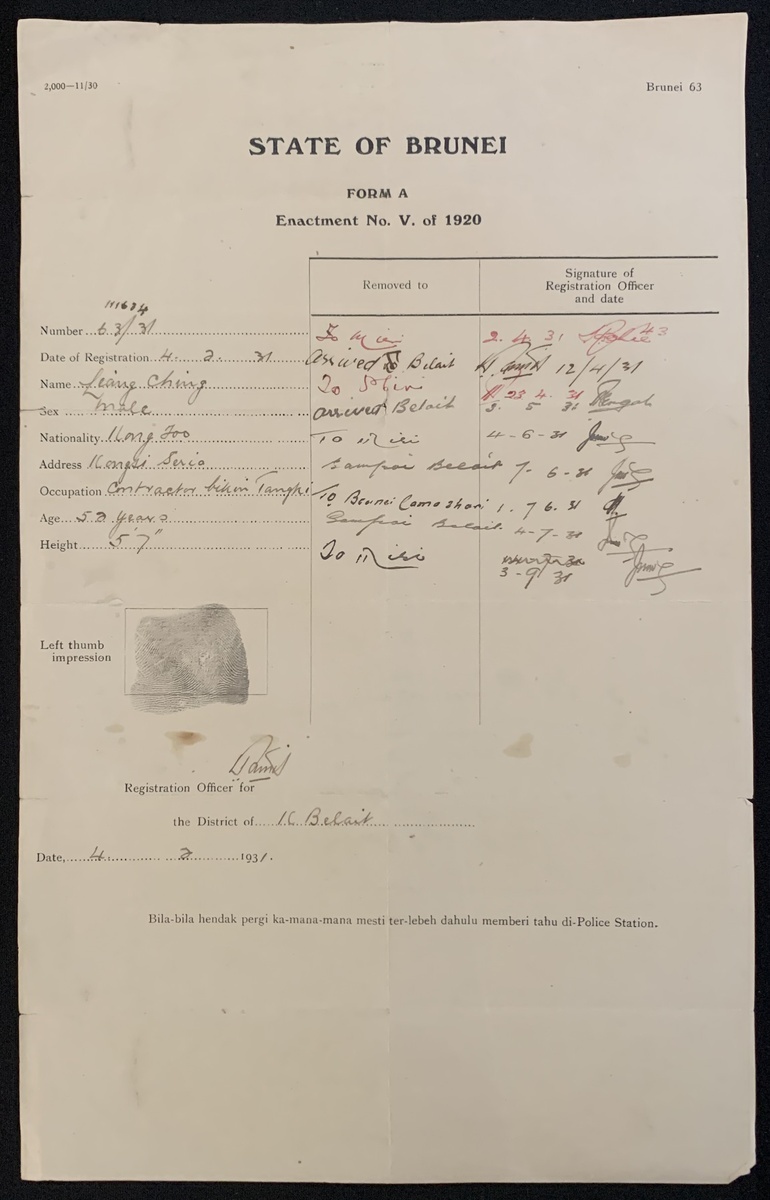 2,000—11/30
Brunei 63
STATE OF BRUNEI
FORM A
Enactment No. V. of 1920
Removed to
Signature of
Registration Officer
and date
Number 63/31
Date of Registration 4. 2. 31
Name Liang Ching
Sex Male
Nationality Kong Foo
Address Kongsi Seria
Occupation Contractor bikin Tangki
Age 52 years
Height 5'7"
To Miri 2. 4. 31
arrived Belait 12/4/31
To Miri 23. 4. 31
arrived Belait 3. 5. 31
To Miri 4-6-31
Sampai Belait 7-6-31
To Brunei 6. 31
Sampai Belait 4-7-31
To Miri
3-9/31
Left thumb
impression
Registration Officer for
the District of K Belait
Date, 4. 2 1931.
Bila-bila hendak pergi ka-mana-mana mesti ter-lebeh dahulu memberi tahu di-Police Station.